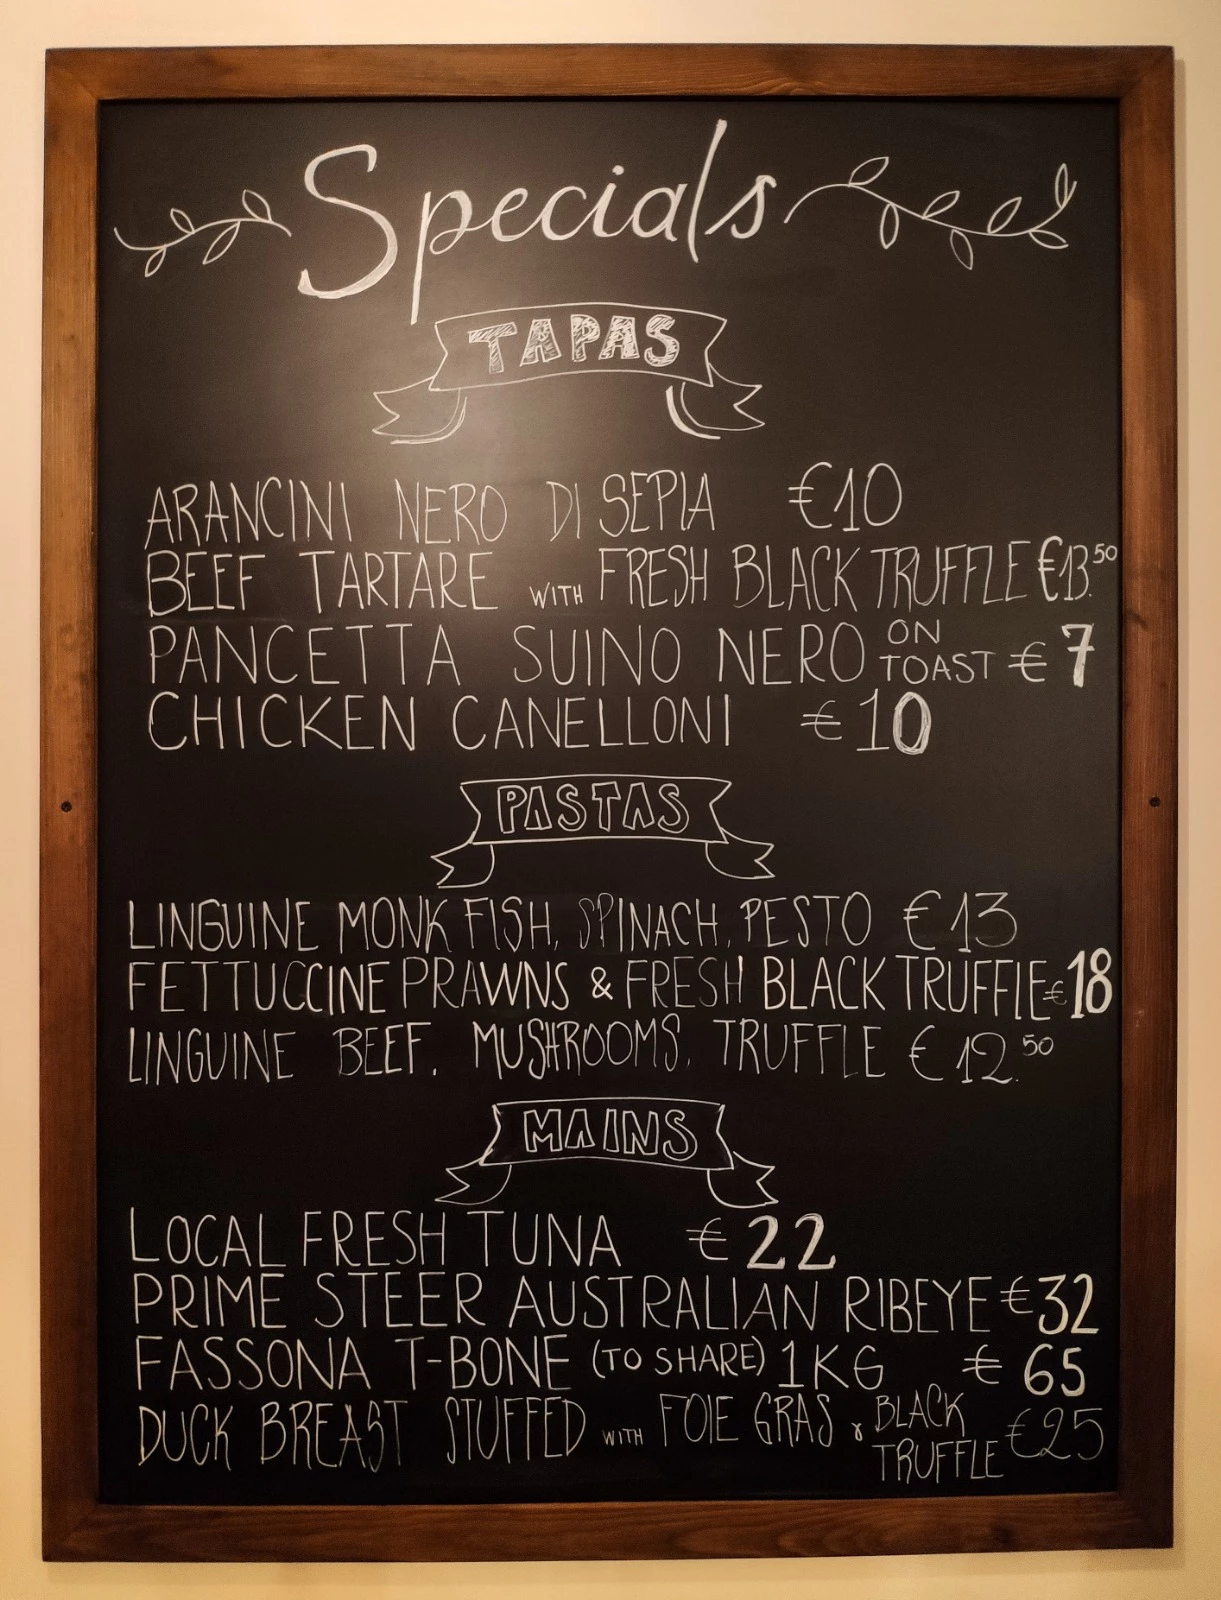 Specials
TAPAS
ARANCINI NERO DI SEPIA €10
BEEF TARTARE WITH FRESH BLACK TRUFFLE €13.50
PANCETTA SUINO NERO ON TOAST € 7
CHICKEN CANELLONI €10
PASTAS
LINGUINE MONK FISH, SPINACH, PESTO €13
FETTUCCINE PRAWNS & FRESH BLACK TRUFFLE €18
LINGUINE BEEF, MUSHROOMS, TRUFFLE €12.50
MAINS
LOCAL FRESH TUNA €22
PRIME STEER AUSTRALIAN RIBEYE €32
FASSONA T-BONE (TO SHARE) 1KG € 65
DUCK BREAST STUFFED WITH FOIE GRAS & BLACK TRUFFLE €25